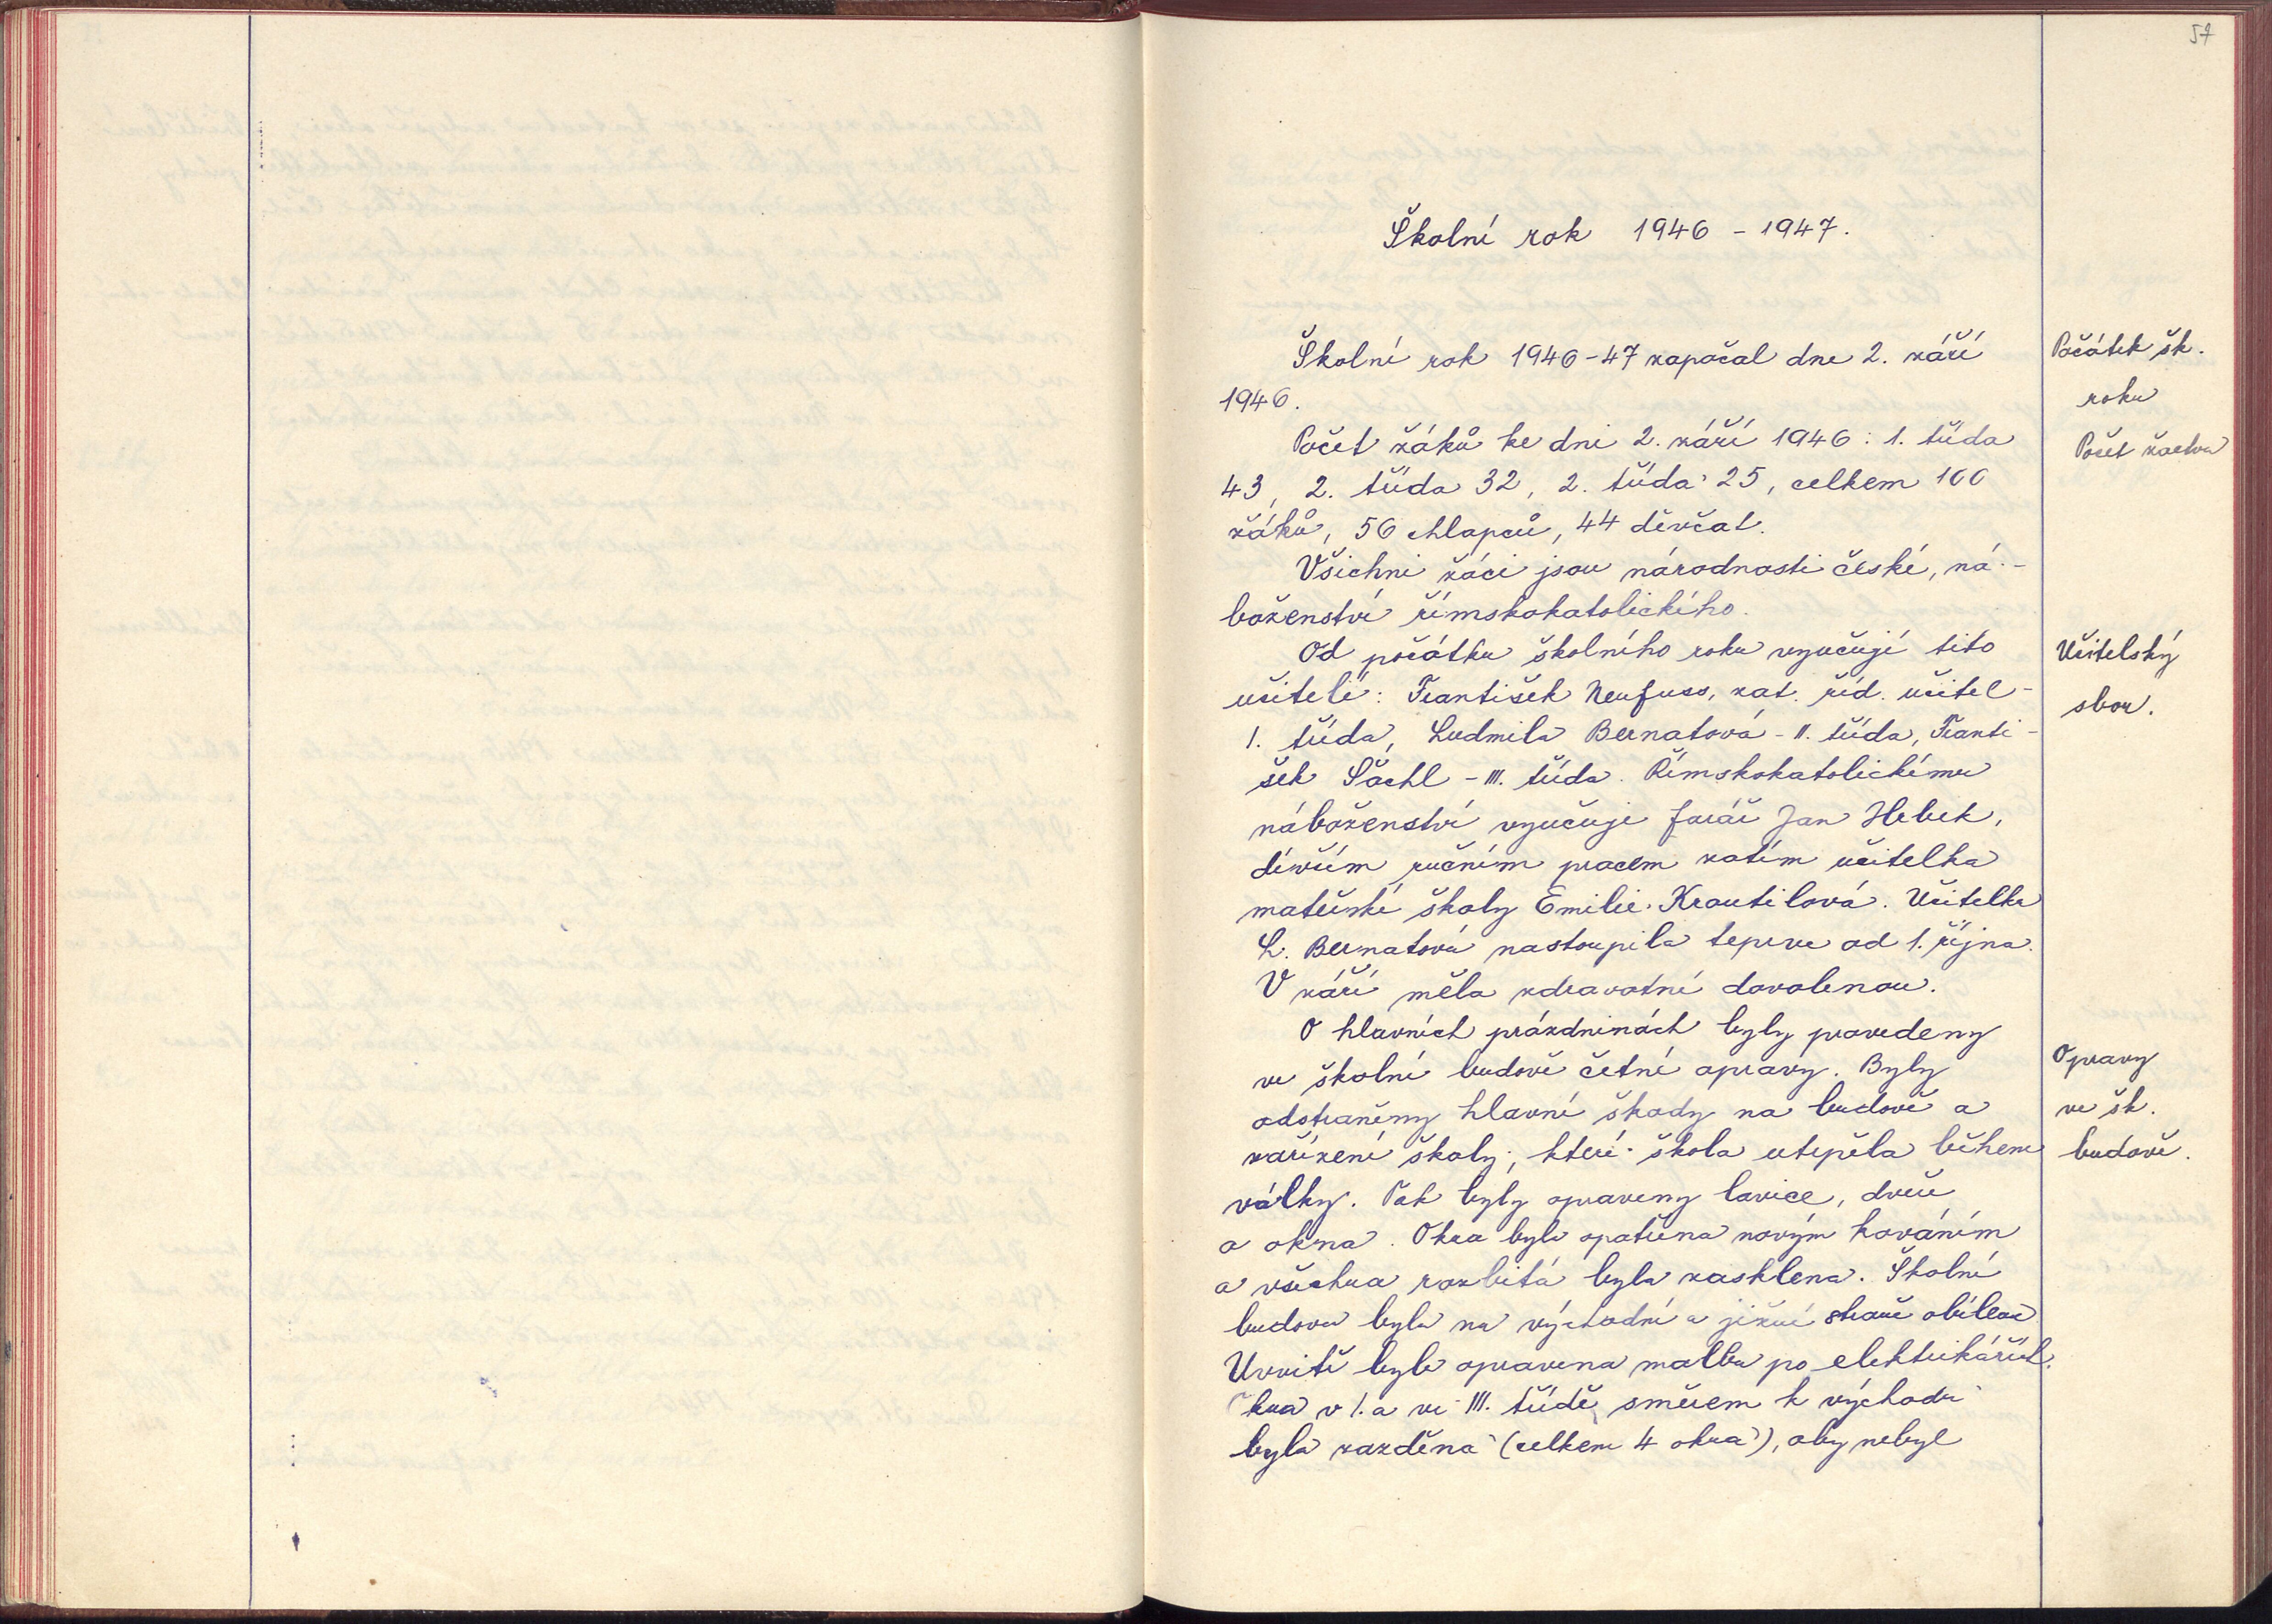 57
Školní rok 1946 - 1947.
Školní rok 1946-47 započal dne 2. září
1946.
Počátek šk.
roku
Počet žáků ke dni 2. září 1946: 1. třída
43, 2. třída 32, 2. třída 25, celkem 100
žáků, 56 chlapců, 44 děvčat.
Počet žactva
Všichni žáci jsou národnosti české, ná-
boženství římskokatolického.
Od počátku školního roku vyučují tito
učitelé: František Neufuss, zat. říd. učitel -
1. třída, Ludmila Bernatová - II. třída, Franti-
šek Šáchl - III. třída. Římskokatolickému
náboženství vyučuje farář Jan Hebek,
dívčím ručním pracem zatím učitelka
mateřské školy Emilie Kroutilová. Učitelka
L. Bernatová nastoupila teprve od 1. října.
V září měla zdravotní dovolenou.
Učitelský
sbor.
O hlavních prázdninách byly provedeny
ve školní budově četné opravy. Byly
odstraněny hlavní škody na budově a
zařízení školy, které škola utrpěla během
války. Tak byly opraveny lavice, dveře
a okna. Okna byla opatřena novým kováním
a všechna rozbitá byla zasklena. Školní
budova byla na východní a jižní straně obílena.
Uvnitř byla opravena malba po elektrikářích.
Okna v I. a ve III. třídě směrem k východu
byla zazděna (celkem 4 okna), aby nebyl
Opravy
ve šk.
budově.